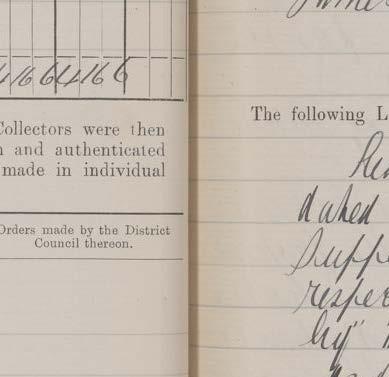 4166 4166
Collectors were then
and authenticated
made in individual
Orders made by the District
Council thereon.
The following L
dated
Suppe
respec
by"